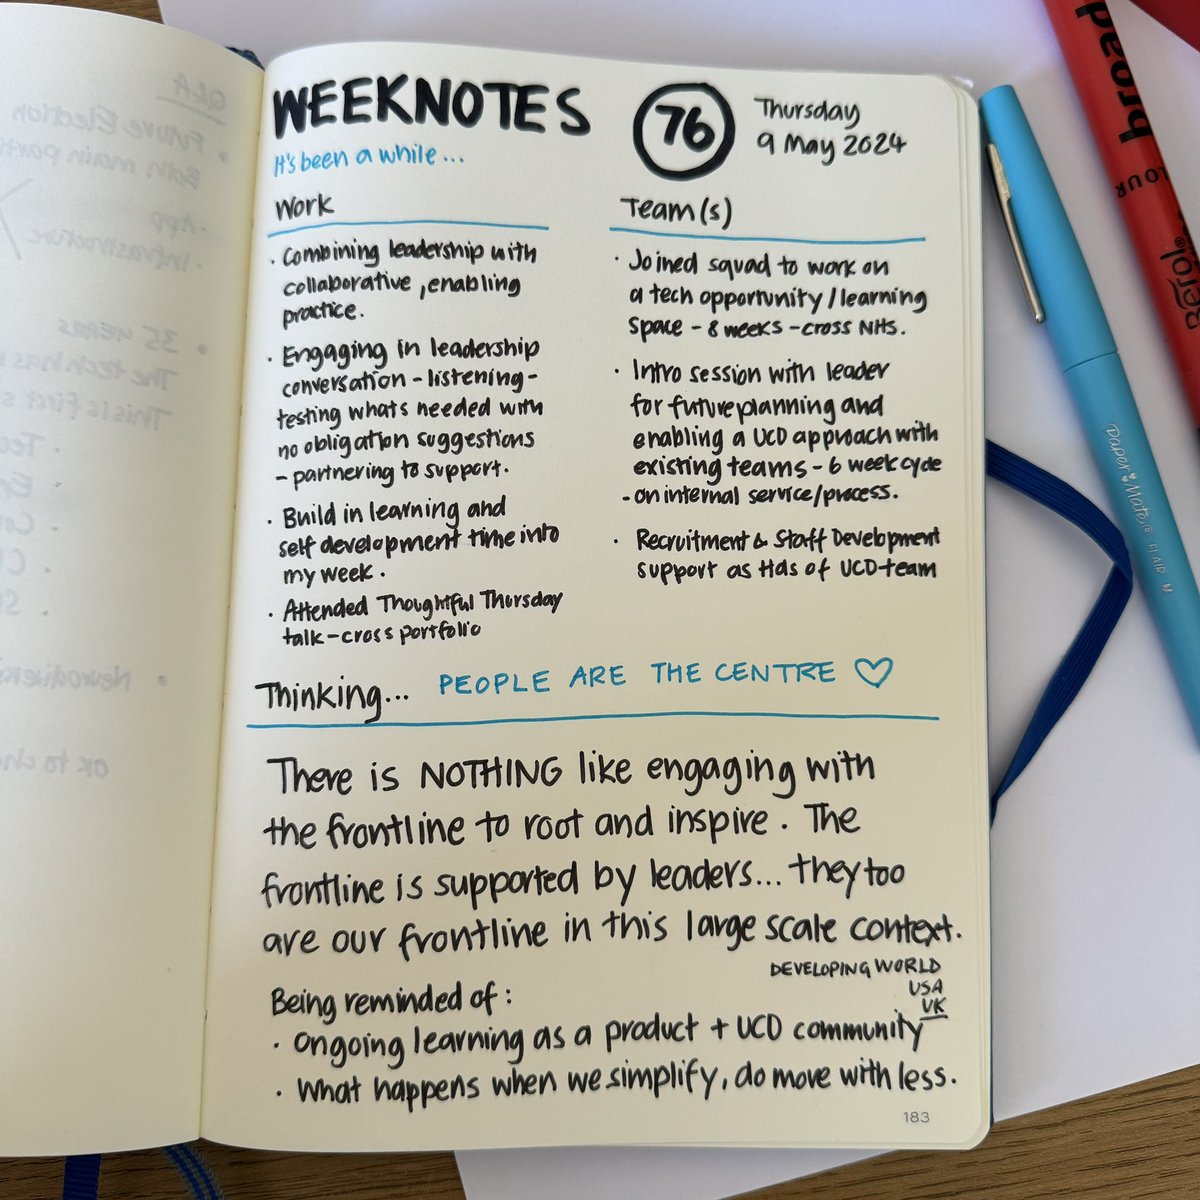 WEEKNOTES
It's been a while...
76
Thursday
9 May 2024
Work
· Combining leadership with
collaborative, enabling
practice.
· Engaging in leadership
conversation - listening -
testing whats needed with
no obligation suggestions
- partnering to support.
· Build in learning and
self development time into
my week.
· Attended Thoughtful Thursday
talk - cross portfolio
Team(s)
· Joined squad to work on
a tech opportunity/learning
space - 8 weeks - cross NHS.
· Intro session with leader
for future planning and
enabling a UCD approach with
existing teams - 6 week cycle
- on internal service/process.
· Recruitment & Staff Development
support as Hds of UCD team
Thinking... PEOPLE ARE THE CENTRE ♡
There is NOTHING like engaging with
the frontline to root and inspire. The
frontline is supported by leaders... they too
are our frontline in this large scale context.
DEVELOPING WORLD
USA
UK
Being reminded of:
· Ongoing learning as a product + UCD community
· What happens when we simplify, do move with less.
183
Paper Mate® FLAIR M
broad
Berol
Q&A
· Future Election
Both main parti
· App
· Infrastructure
· 35 years
The tech has
This is first s